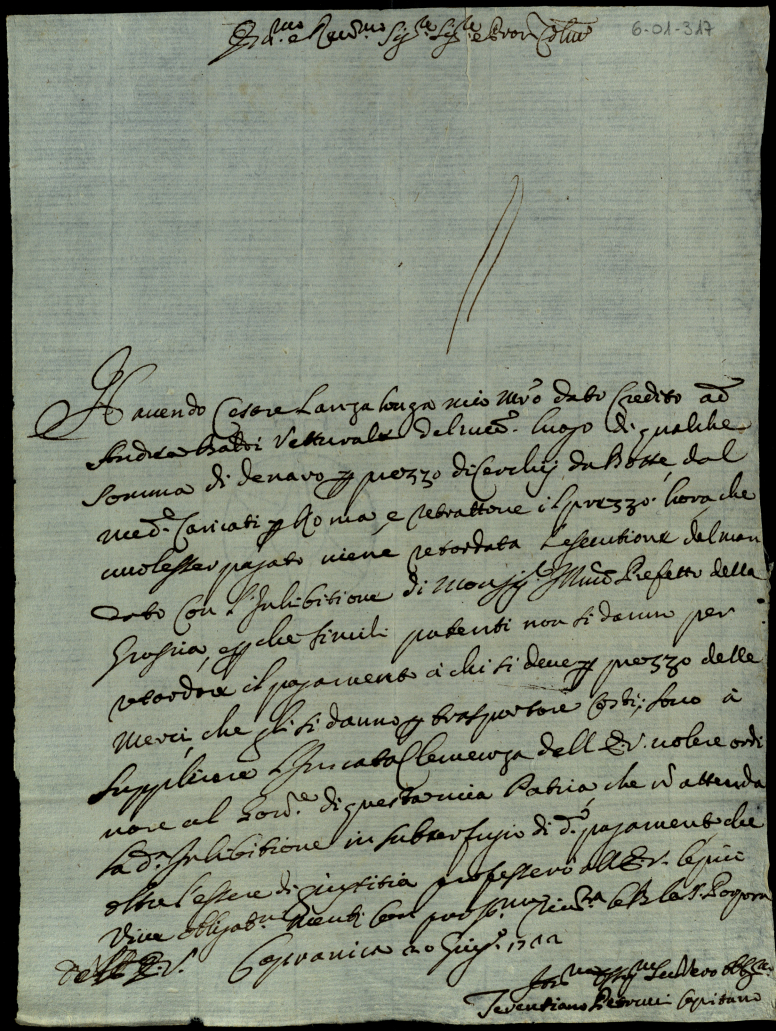 6-01-317
Em.mo e Rev.mo Sig.re Sig.re e Pron Col.mo
Havendo Cesare Lanzalonga mio dato Credito ad
Andrea Baldi Vetturale del med. luogo di qualche
somma di denaro p prezzo di Cerchij da Botte, dal
med. Caricati p Roma, e retrattone il prezzo. hora che
vuol esser pagato viene retardata l'esecutione del man
dato con l'Inhibitione di Mons.re Prefetto della
Grascia, e p che simili patenti non si danno per
retardare il pagamento à chi si deve p prezzo delle
Merci, che gli si danno p trasportare costì, sono à
supplicare l'Innata Clemenza dell' E.V. volere ordi
nare al Gov.re di questa mia Patria, che n attenda
la d.a Inhibitione in subterfugio di d.o pagamento, che
oltre l'essere di giustitia professerò all' E.V. le più
vive obligat.ni mentre con prof.ma bacio la Porpora
dell' E.V. Capranica 20 Giug.o 1722
Servitore
Terentiano Petrucci Capitano